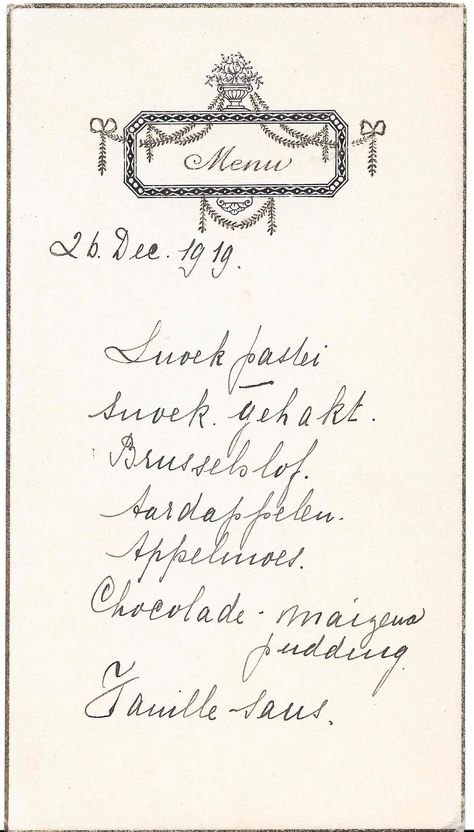 Menu
26. Dec. 1919.
Snoek pastei
Snoek. gehakt.
Brusselslof.
Aardappelen.
Appelmoes.
Chocolade - maizena
pudding
Vanille-saus.